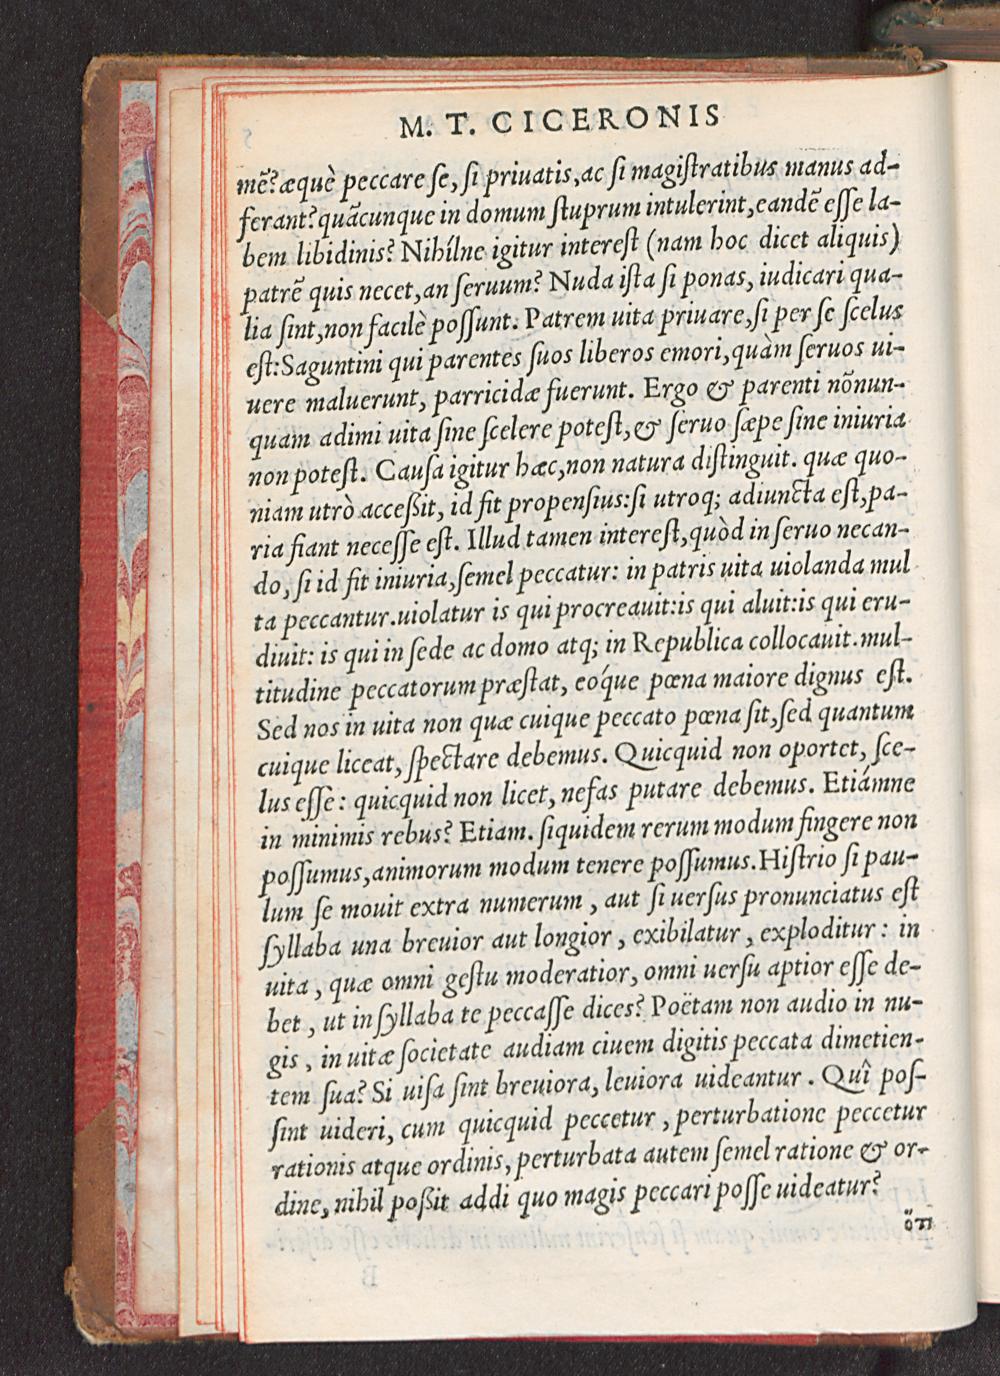 M. T. CICERONIS
mẽ? æquè peccare ſe, ſi priuatis, ac ſi magiſtratibus manus ad-
ferant? quãcunque in domum ſtuprum intulerint, eandẽ eſſe la-
bem libidinis? Nihílne igitur intereſt (nam hoc dicet aliquis)
patrẽ quis necet, an ſeruum? Nuda iſta ſi ponas, iudicari qua-
lia ſint, non facilè poſſunt. Patrem uita priuare, ſi per ſe ſcelus
eſt: Saguntini qui parentes ſuos liberos emori, quàm ſeruos ui-
uere maluerunt, parricidæ fuerunt. Ergo & parenti nõnun-
quam adimi uita ſine ſcelere poteſt, & ſeruo ſæpe ſine iniuria
non poteſt. Cauſa igitur hæc, non natura diſtinguit. quæ quo-
niam utrò acceßit, id fit propenſius: ſi utroq; adiuncta eſt, pa-
ria fiant neceſſe eſt. Illud tamen intereſt, quòd in ſeruo necan-
do, ſi id fit iniuria, ſemel peccatur: in patris uita uiolanda mul
ta peccantur. uiolatur is qui procreauit: is qui aluit: is qui eru-
diuit: is qui in ſede ac domo atq; in Republica collocauit. mul-
titudine peccatorum præſtat, eóque pœna maiore dignus eſt.
Sed nos in uita non quæ cuique peccato pœna ſit, ſed quantum
cuique liceat, ſpectare debemus. Quicquid non oportet, ſce-
lus eſſe: quicquid non licet, nefas putare debemus. Etiámne
in minimis rebus? Etiam. ſiquidem rerum modum fingere non
poſſumus, animorum modum tenere poſſumus. Hiſtrio ſi pau-
lum ſe mouit extra numerum, aut ſi uerſus pronunciatus eſt
ſyllaba una breuior aut longior, exibilatur, exploditur: in
uita, quæ omni geſtu moderatior, omni uerſu aptior eſſe de-
bet, ut in ſyllaba te peccaſſe dices? Poëtam non audio in nu-
gis, in uitæ ſocietate audiam ciuem digitis peccata dimetien-
tem ſua? Si uiſa ſint breuiora, leuiora uideantur. Quî poſ-
ſint uideri, cum quicquid peccetur, perturbatione peccetur
rationis atque ordinis, perturbata autem ſemel ratione & or-
dine, nihil poßit addi quo magis peccari poſſe uideatur?
ὅτι